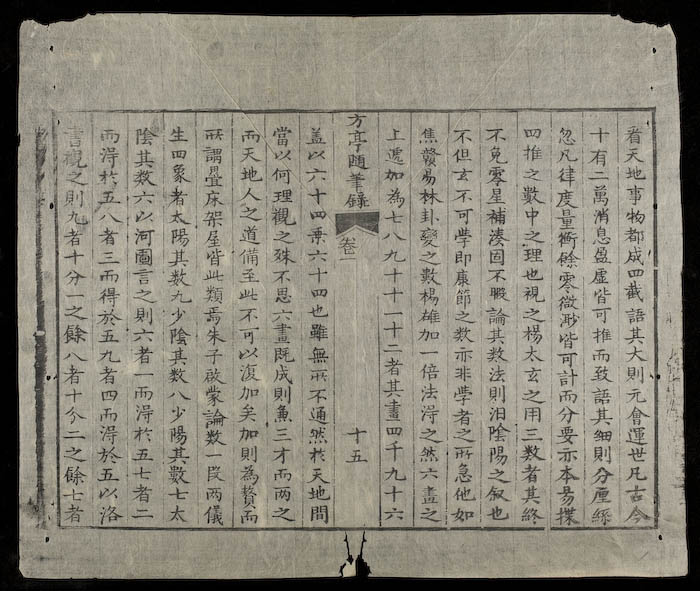 看天地事物都成四截語其大則元會運世凡古今
十有二萬消息盈虛皆可推而致語其細則分厘絲
忽凡律度量衡餘零微渺皆可計而分要亦本易揲
四推之數中之理也視之楊太玄之用三數者其終
不免零星補湊因不暇論其数法則汩陰陽之叙也
不但玄不可學即康節之数亦非學者之所急他如
焦贛易林卦變之數楊雄加一倍法淂之然六畫之
上遞加為七八九十十一十二者其畫四千九十六
方亭隨筆錄
卷一
十五
盖以六十四乗六十四也雖無所不通然於天地間
當以何理觀之殊不思六畫既成則兼三才而兩之
而天地人之道備至此不可以復加矣加則為贅而
所謂疊床架屋皆此類焉朱子啟蒙論數一段兩儀
生四象者太陽其數九少陰其數八少陽其數七太
陰其數六以河圖言之則六者一而淂於五七者二
而淂於五八者三而得於五九者四而淂於五以洛
書觀之則九者十分一之餘八者十分二之餘七者